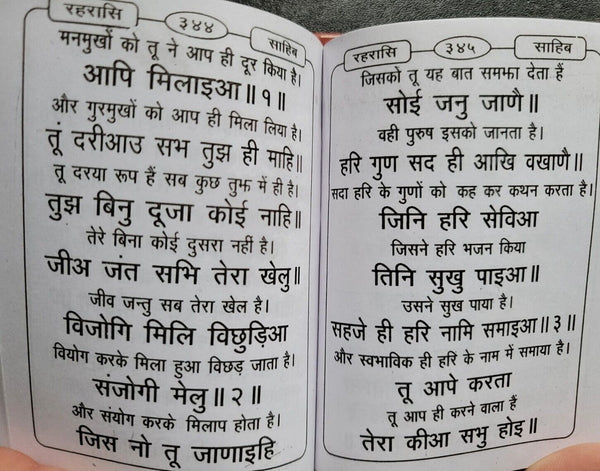 रहरासि ३४४ साहिब
मनमुखों को तू ने आप ही दूर किया है।
आपि मिलाइआ॥१॥
और गुरमुखों को आप ही मिला लिया है।
तूं दरीआउ सभ तुझ ही माहि॥
तू दरया रूप हैं सब कुछ तुझ में ही है।
तुझ बिनु दूजा कोई नाहि॥
तेरे बिना कोई दुसरा नहीं है।
जीअ जंत सभि तेरा खेलु॥
जीव जन्तु सब तेरा खेल है।
विजोगि मिलि विछुड़िआ
वियोग करके मिला हुआ विछड़ जाता है।
संजोगी मेलु॥२॥
और संयोग करके मिलाप होता है।
जिस नो तू जाणाइहि
रहरासि ३४५ साहिब
जिसको तू यह बात समझा देता हैं
सोई जनु जाणै॥
वही पुरुष इसको जानता है।
हरि गुण सद ही आखि वखाणै॥
सदा हरि के गुणों को कह कर कथन करता है।
जिनि हरि सेविआ
जिसने हरि भजन किया
तिनि सुखु पाइआ॥
उसने सुख पाया है।
सहजे ही हरि नामि समाइआ॥३॥
और स्वभाविक ही हरि के नाम में समाया है।
तू आपे करता
तू आप ही करने वाला हैं
तेरा कीआ सभु होइ॥